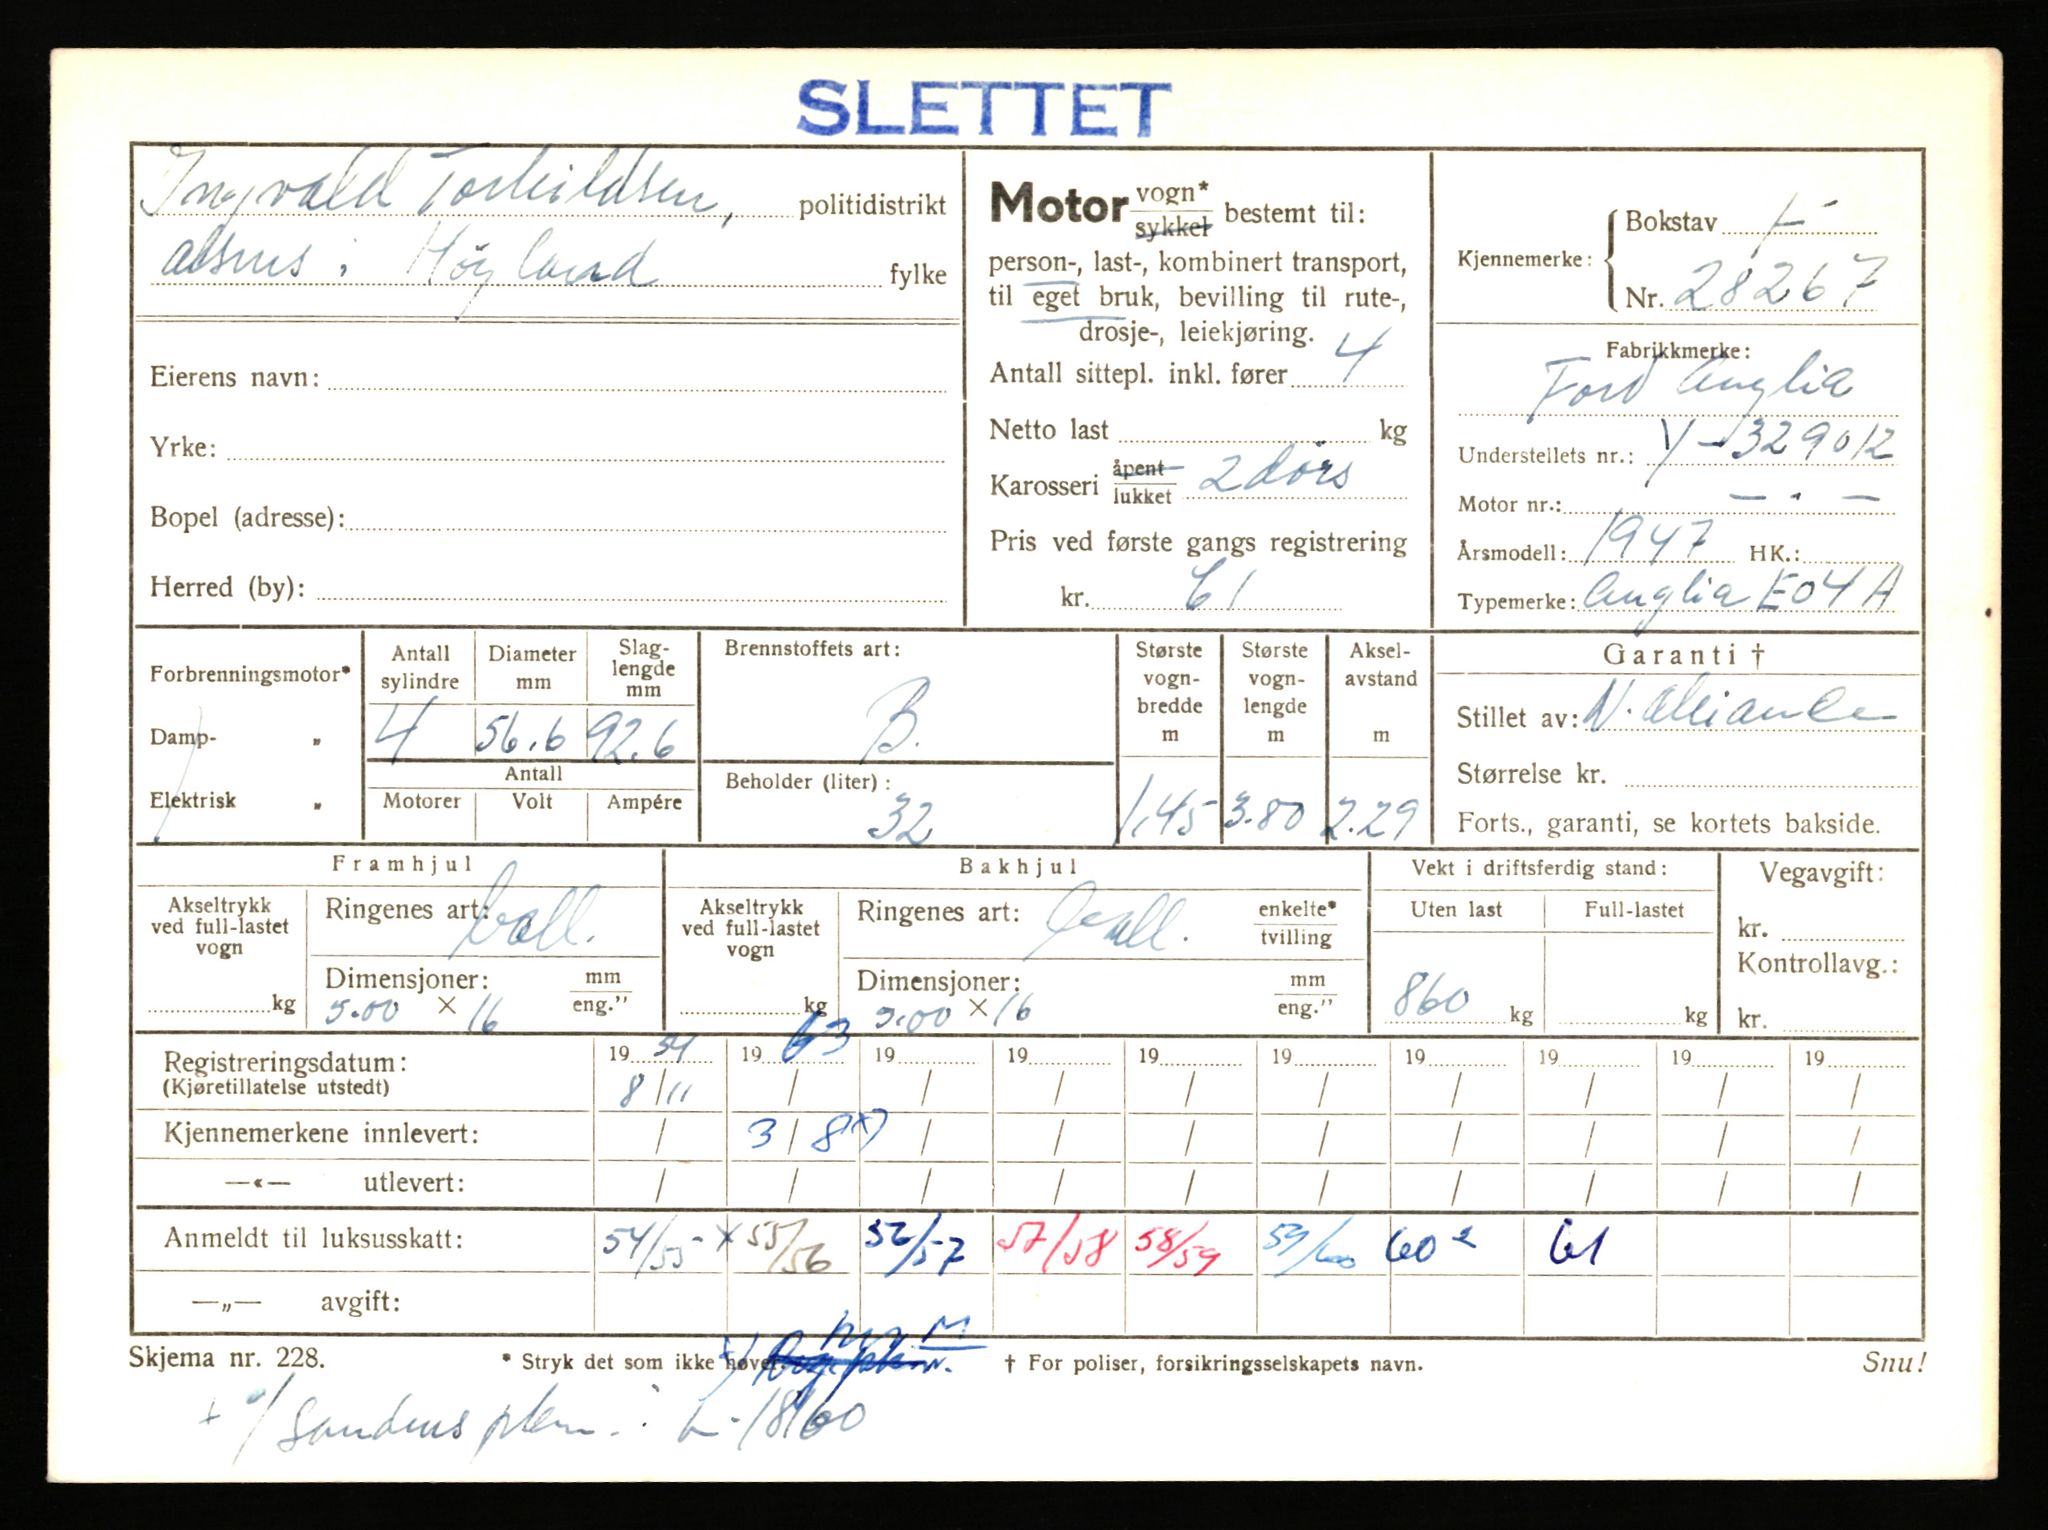 SLETTET
Ingvald Torkildsen, politidistrikt
Høyland fylke
Eierens navn:
Yrke:
Bopel (adresse):
Herred (by):
Motor vogn* sykkel bestemt til:
person-, last-, kombinert transport,
til eget bruk, bevilling til rute-,
drosje-, leiekjøring.
Antall sittepl. inkl. fører 4
Netto last kg
Karosseri åpent lukket 2 dörs
Pris ved første gangs registrering
kr. 61
Kjennemerke:
Bokstav L
Nr. 28267
Fabrikkmerke:
Ford Anglia
Understellets nr.: Y-329012
Motor nr.: — . —
Årsmodell: 1947 HK.:
Typemerke: Anglia E04A
Forbrenningsmotor*
Damp- „
Elektrisk „
Antall sylindre 4
Diameter mm 56.6
Slag-lengde mm 92.6
Antall
Motorer Volt Ampére
Brennstoffets art:
B.
Beholder (liter):
32
Største vogn-bredde m 1,45
Største vogn-lengde m 3.80
Aksel-avstand m 2.29
Garanti †
Stillet av: N. Alliance
Størrelse kr.
Forts., garanti, se kortets bakside.
Framhjul
Akseltrykk ved full-lastet vogn
kg
Ringenes art: ball.
Dimensjoner: mm eng."
5.00 × 16
Bakhjul
Akseltrykk ved full-lastet vogn
kg
Ringenes art: ball. enkelte* tvilling
Dimensjoner: mm eng."
5.00 × 16
Vekt i driftsferdig stand:
Uten last Full-lastet
860 kg kg
Vegavgift:
kr.
Kontrollavg.:
kr.
Registreringsdatum: 19 54 19 63 19 19 19 19 19 19 19 19
(Kjøretillatelse utstedt) 8/11 / / / / / / / / /
Kjennemerkene innlevert: / 3/8 x) / / / / / / / /
—«— utlevert: / / / / / / / / / /
Anmeldt til luksusskatt: 54/55 x 55/56 56/57 57/58 58/59 59/60 60² 61
—„— avgift:
Skjema nr. 228.
* Stryk det som ikke høver.
† For poliser, forsikringsselskapets navn.
Snu!
Sandnes L-18160